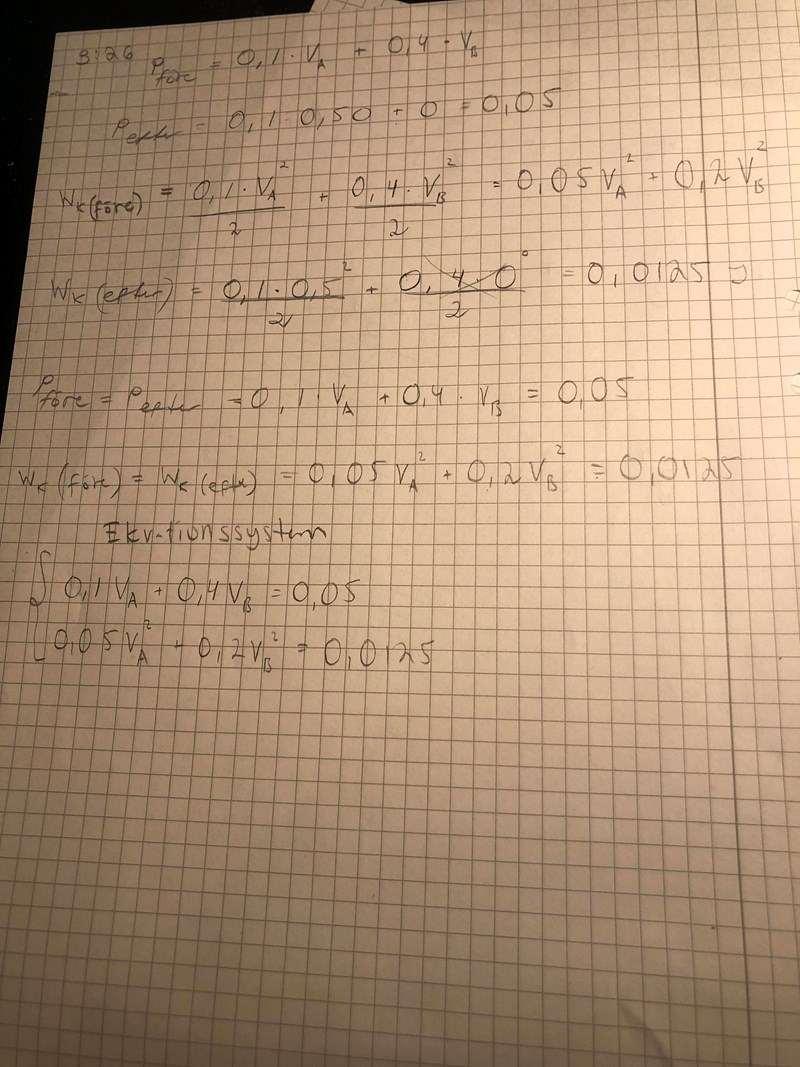 3:26 P_före = 0,1 · V_A + 0,4 · V_B
P_efter = 0,1 · 0,50 + 0 = 0,05
W_K(före) = 0,1 · V_A²/2 + 0,4 · V_B²/2 = 0,05 V_A² + 0,2 V_B²
W_K(efter) = 0,1 · 0,5²/2 + 0,4 · 0/2 = 0,0125 J
P_före = P_efter = 0,1 · V_A + 0,4 · V_B = 0,05
W_K(före) = W_K(efter) = 0,05 V_A² + 0,2 V_B² = 0,0125
Ekvationssystem
0,1 V_A + 0,4 V_B = 0,05
0,05 V_A² + 0,2 V_B² = 0,0125